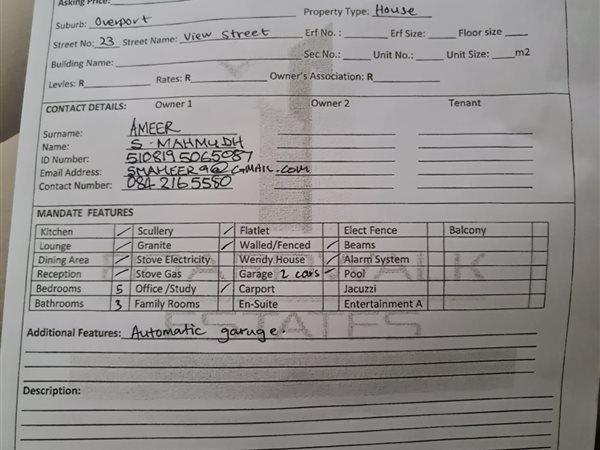 Asking Price:
Suburb: Overport Property Type: House
Street No: 23 Street Name: View Street Erf No. : Erf Size: Floor size
Building Name: Sec No.: Unit No.: Unit Size: m2
Levies: R Rates: R Owner's Association: R
CONTACT DETAILS: Owner 1 Owner 2 Tenant
Surname: AMEER
Name: S. MAHMUDH
ID Number: 5108195065087
Email Address: SMAMEER9@GMAIL.com
Contact Number: 084 2165580
MANDATE FEATURES
Kitchen ✓ Scullery ✓ Flatlet Elect Fence Balcony
Lounge ✓ Granite ✓ Walled/Fenced ✓ Beams
Dining Area ✓ Stove Electricity Wendy House ✓ Alarm System
Reception ✓ Stove Gas Garage 2 cars ✓ Pool
Bedrooms 5 Office/Study ✓ Carport Jacuzzi
Bathrooms 3 Family Rooms En-Suite Entertainment A
ESTATES
Additional Features: Automatic garage.
Description: